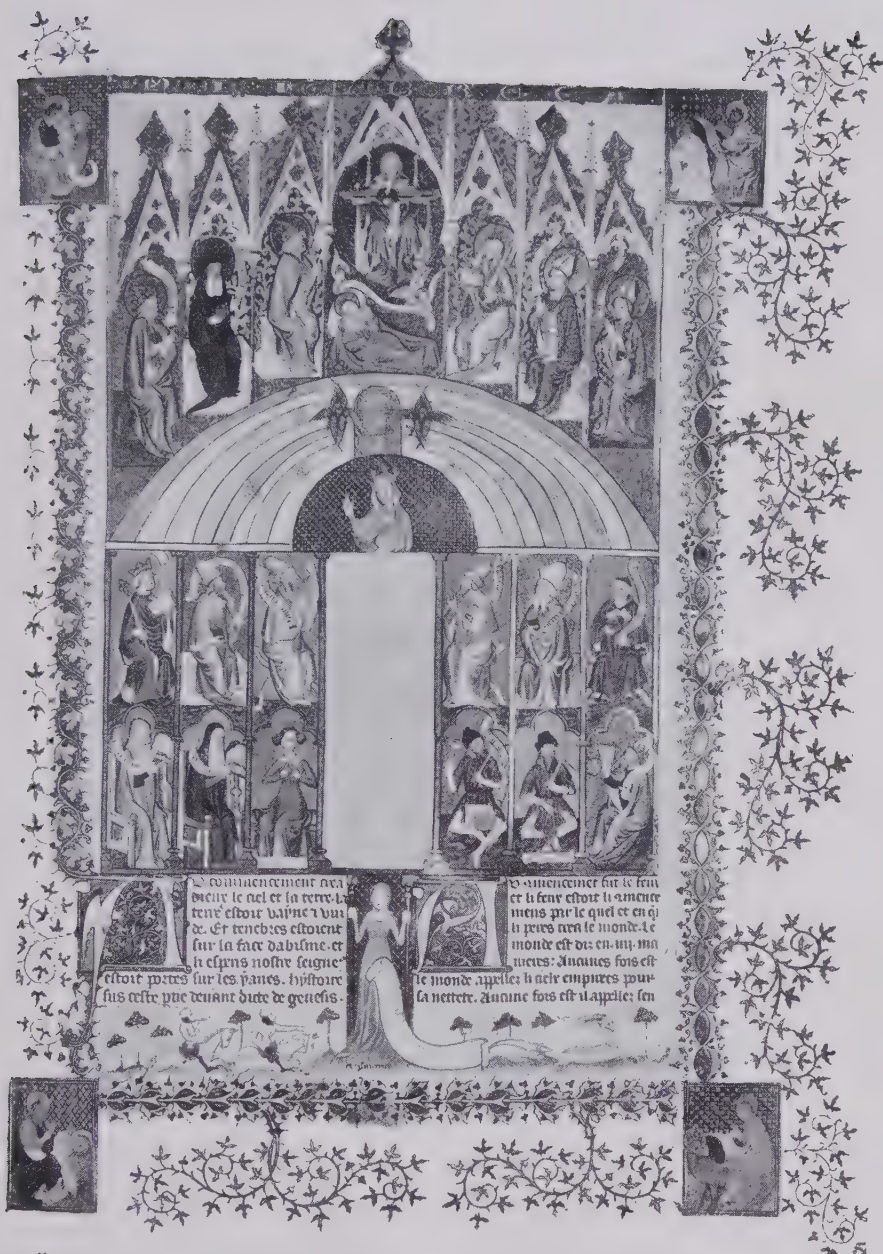 commencement crea
dieux le ciel et la terre. la
terre estoit vayne ⁊ vui
de. Et tenebres estoient
sur la face dabisme. et
li espris nostre seigne᷑
estoit portes sur les yaues. hystoire
sus ceste ptie devant dicte de genesis.
fut le
et li estoit li
mens par le quel et en q̇
li peres crea le monde. Le
monde est dit en .iiii. ma
nieres: Aucunes fois est
le monde appellez li ciels empirees pour
sa nettete. Aucune fois est il appellez sen